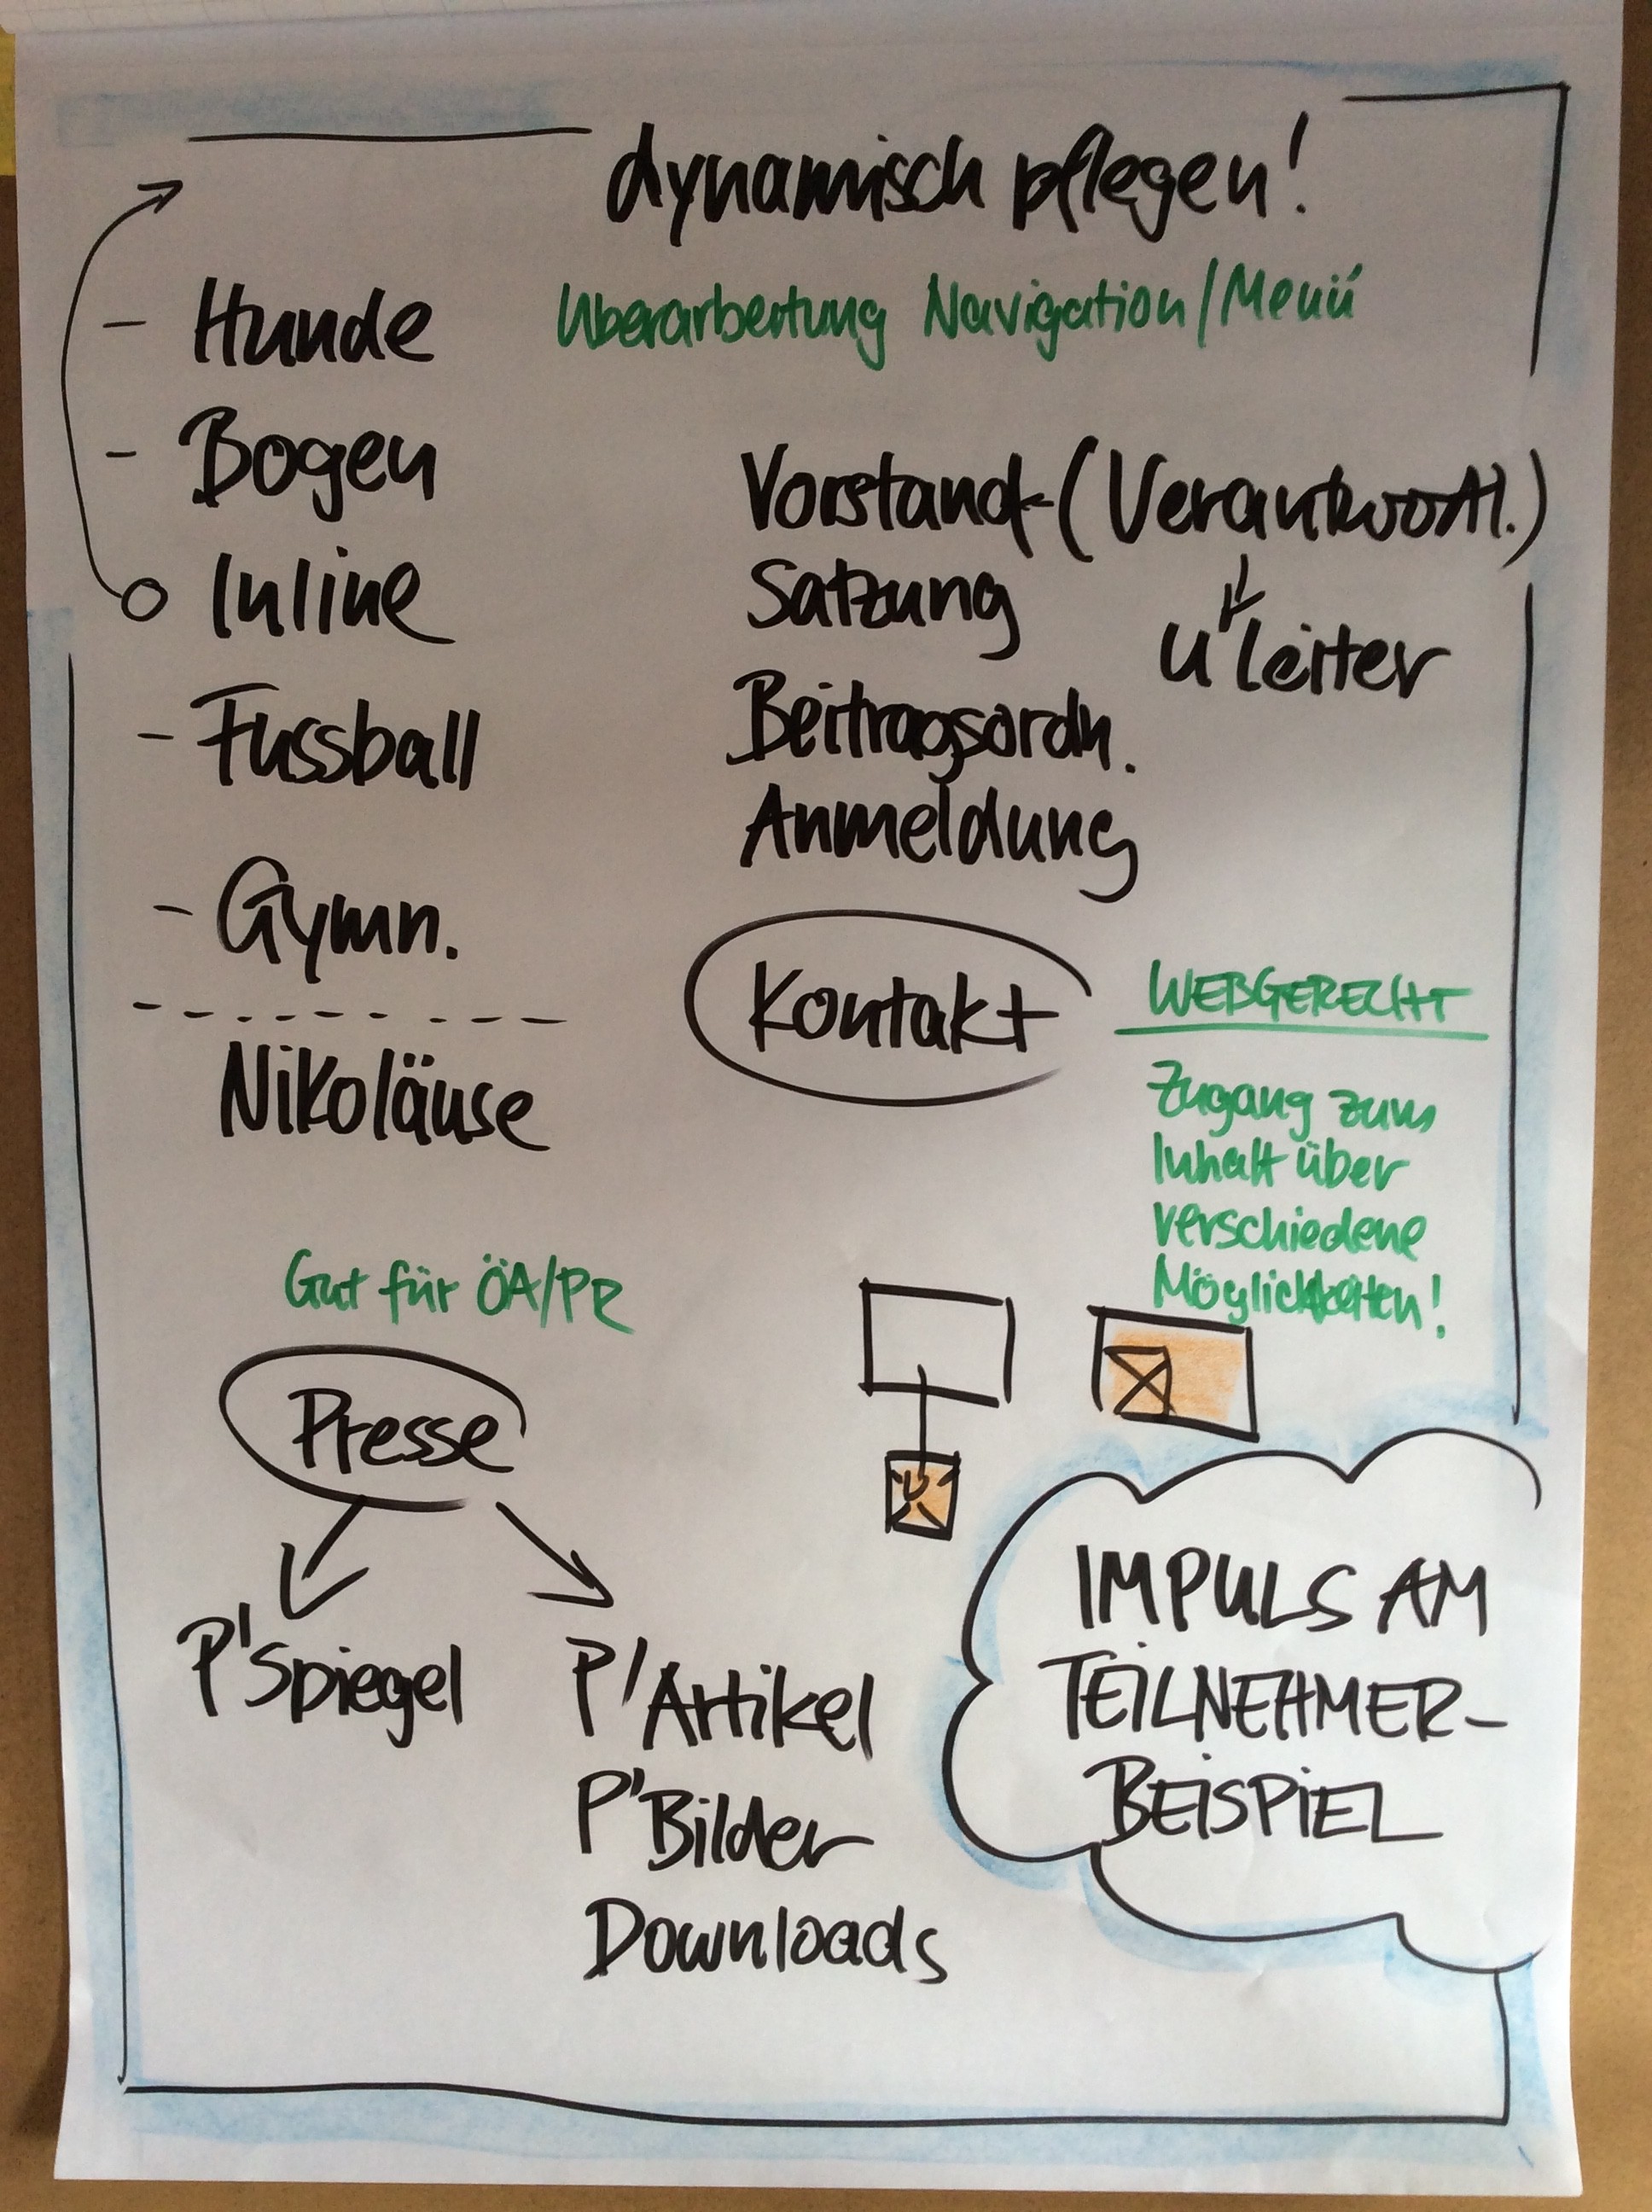 dynamisch pflegen!
Überarbeitung Navigation/Menü
- Hunde
- Bogen
Inline
- Fussball
- Gymn.
Nikoläuse
Vorstand-(Verantwortl.)
Satzung
Ü'leiter
Beitragsordn.
Anmeldung
Kontakt
WEBGERECHT
Zugang zum
Inhalt über
verschiedene
Möglichkeiten!
Gut für ÖA/PR
Presse
P'Spiegel
P'Artikel
P'Bilder
Downloads
IMPULS AM
TEILNEHMER-
BEISPIEL